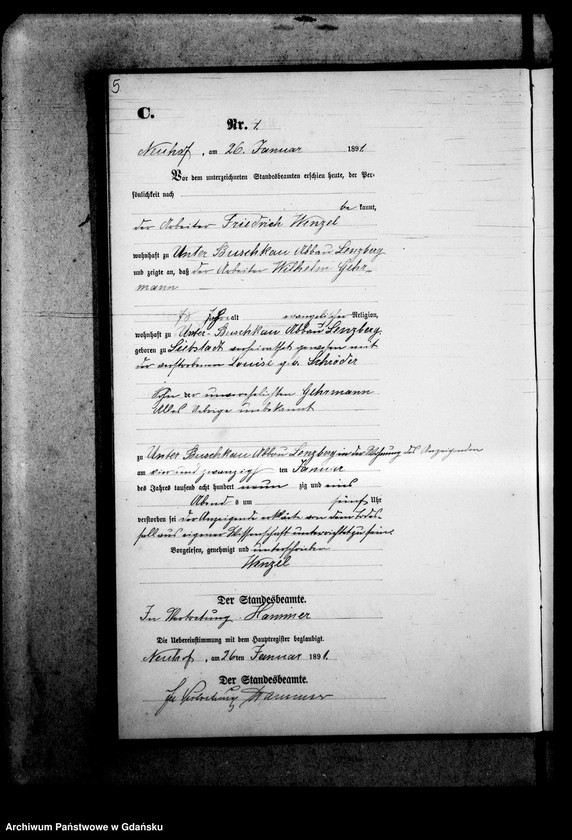 5
C.
Nr. 4.
Neuhof, am 26. Januar 1891.
Vor dem unterzeichneten Standesbeamten erschien heute, der Per-
sönlichkeit nach
be kannt,
der Arbeiter Friedrich Wenzel
wohnhaft zu Unter Buschkau Abbau Lenzberg
und zeigte an, daß der Arbeiter Wilhelm Gehr-
mann
Jahre alt evangelischer Religion,
wohnhaft zu Unter-Buschkau Abbau Lenzberg,
geboren zu Liebstadt verheirathet gewesen mit
der verstorbenen Louise geb. Schröder
Sohn der unverehelichten Gehrmann
Alles Uebrige unbekannt
zu Unter Buschkau Abbau Lenzberg in der Wohnung des Anzeigenden
am vier und zwanzig ten Januar
des Jahres tausend acht hundert neun zig und eins
Abend s um fünf Uhr
verstorben sei der Anzeigende erklärte von dem Todes-
fall aus eigener Wissenschaft unterrichtet zu sein.
Vorgelesen, genehmigt und unterschrieben
Wenzel
Der Standesbeamte.
In Vertretung Hammer
Die Uebereinstimmung mit dem Hauptregister beglaubigt.
Neuhof, am 26ten Januar 1891.
Der Standesbeamte.
In Vertretung Hammer
Archiwum Państwowe w Gdańsku